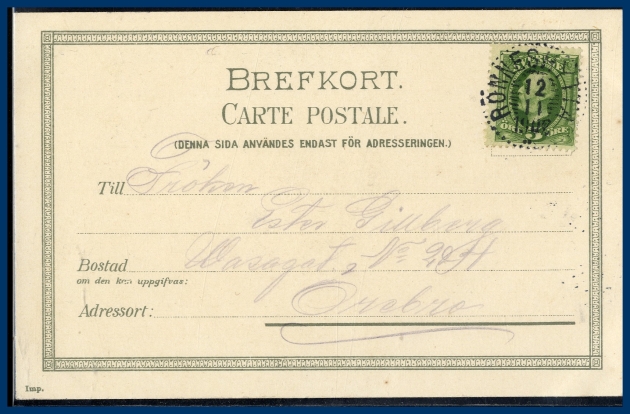 BREFKORT.
CARTE POSTALE.
(DENNA SIDA ANVÄNDES ENDAST FÖR ADRESSERINGEN.)
Till Fröken
Ester Gillberg
Bostad Wasagat. No
om den kan uppgifvas:
Adressort: Örebro
Imp.
12
11
ÖRE